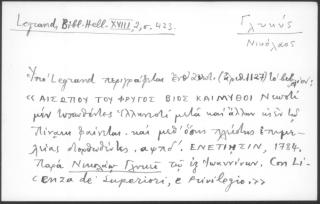 Legrand, Bibl. Hell. XVIII, 2, σ. 423.
Γλυκύς
Νικόλαος
Ὑπὸ Legrand περιγράφεται ἐν (ἀριθ. 1127) τὸ
<< ΑΙΣΩΠΟΥ ΤΟΥ ΦΡΥΓΟΣ ΒΙΟΣ ΚΑΙ ΜΥΘΟΙ Νεωστὶ
μὲν τυπωθέντες Ἑλληνιστὶ μετὰ καὶ ἄλλων ὡς ἐν τῷ
Πίνακι φαίνεται. καὶ μεθ' ὅσης πλείστης ἐπιμε-
λείας διορθωθέντες. ͵αψπδ΄. ΕΝΕΤΙΗΣΙΝ, 1784.
Παρὰ Νικολάῳ Γλυκεῖ τῷ ἐξ Ἰωαννίνων. Con Li-
cenza de' Superiori, e Privilegio. >>